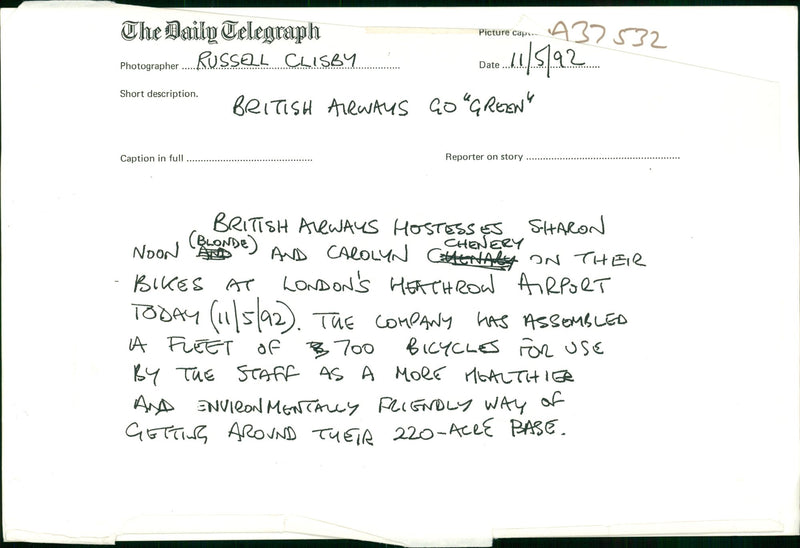 The Daily Telegraph
Picture cap
A37532
Photographer RUSSELL CLISBY
Date 11/5/92
Short description.
BRITISH AIRWAYS GO "GREEN"
Caption in full
Reporter on story
BRITISH AIRWAYS HOSTESSES SHARON
NOON (BLONDE) AND CAROLYN CHENERY ON THEIR
BIKES AT LONDON'S HEATHROW AIRPORT
TODAY (11/5/92). THE COMPANY HAS ASSEMBLED
A FLEET OF 700 BICYCLES FOR USE
BY THE STAFF AS A MORE HEALTHIER
AND ENVIRONMENTALLY FRIENDLY WAY OF
GETTING AROUND THEIR 220-ACRE BASE.